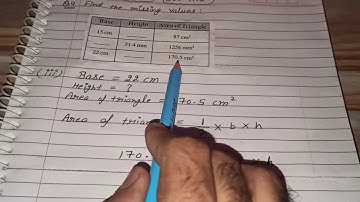 Q4 Find the missing values:
Base Height Area of Triangle
15 cm ____ 87 cm²
____ 31.4 mm 1256 mm²
22 cm ____ 170.5 cm²
(iii) Base = 22 cm
Height = ?
Area of triangle = 170.5 cm²
Area of trian = 1/2 × b × h
170. × h